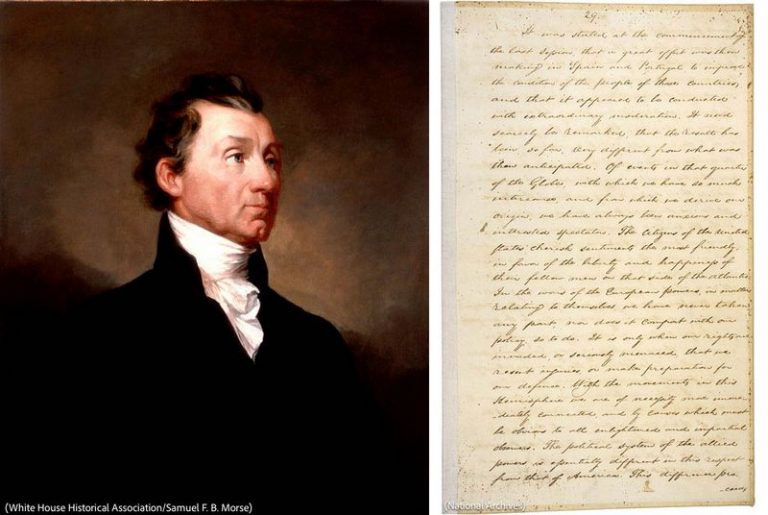 29.
It was stated at the commencement of
the last session, that a great effort was then
making in Spain and Portugal to improve
the condition of the people of those countries,
and that it appeared to be conducted
with extraordinary moderation. It need
scarcely be remarked, that the result has
been so far, very different from what was
then anticipated. Of events in that quarter
of the Globe, with which we have so much
intercourse, and from which we derive our
origin, we have always been anxious and
interested spectators. The Citizens of the United
States cherish sentiments the most friendly,
in favor of the liberty and happiness of
their fellow men on that side of the atlantic.
In the wars of the European powers, in matters
relating to themselves we have never taken
any part, nor does it comport with our
policy, so to do. It is only when our rights are
invaded, or seriously menaced, that we
resent injuries, or make preparation for
our defense. With the movements in this
Hemisphere we are of necessity more imme-
-diately connected, and by causes which must
be obvious to all enlightened and impartial
observers. The political system of the allied
powers, is essentially different in this respect
from that of America. This difference pro-
-ceeds,
(White House Historical Association/Samuel F. B. Morse)
(National Archives)